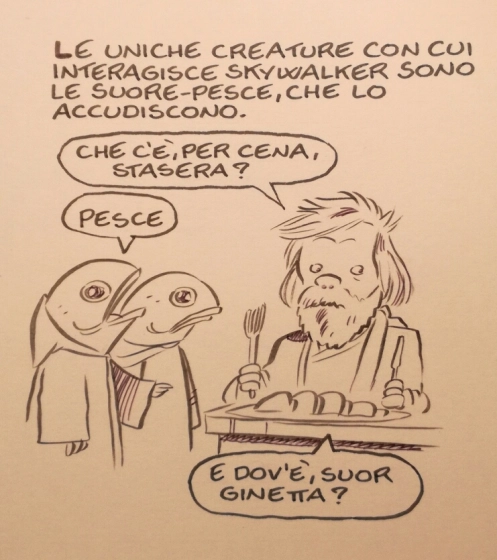 LE UNICHE CREATURE CON CUI
INTERAGISCE SKYWALKER SONO
LE SUORE-PESCE, CHE LO
ACCUDISCONO.
CHE C'È, PER CENA,
STASERA?
PESCE
E DOV'È, SUOR
GINETTA?